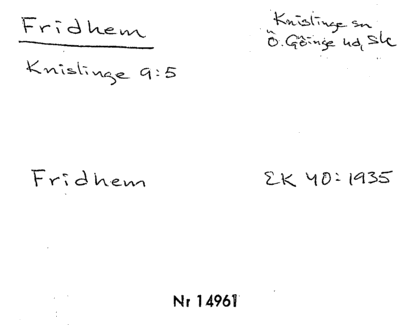 Fridhem
Knislinge sn
Ö. Göinge hd, Sk
Knislinge 9:5
Fridhem
EK 40: 1935
Nr 14961